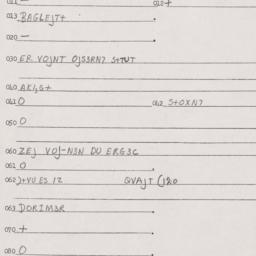 011 — 012 +
013 BAGLEJT+
020 —
030 ER VOJNT OJS3RN7 S+TUT
040 AKI,G+
041 0 042 S+OXN7
050 0
060 ZEJ VOJ-N3N DU ERG3C
061 0
062 )+VU ES 12 QVAJT
063 DORIM3R
070 +
080 0